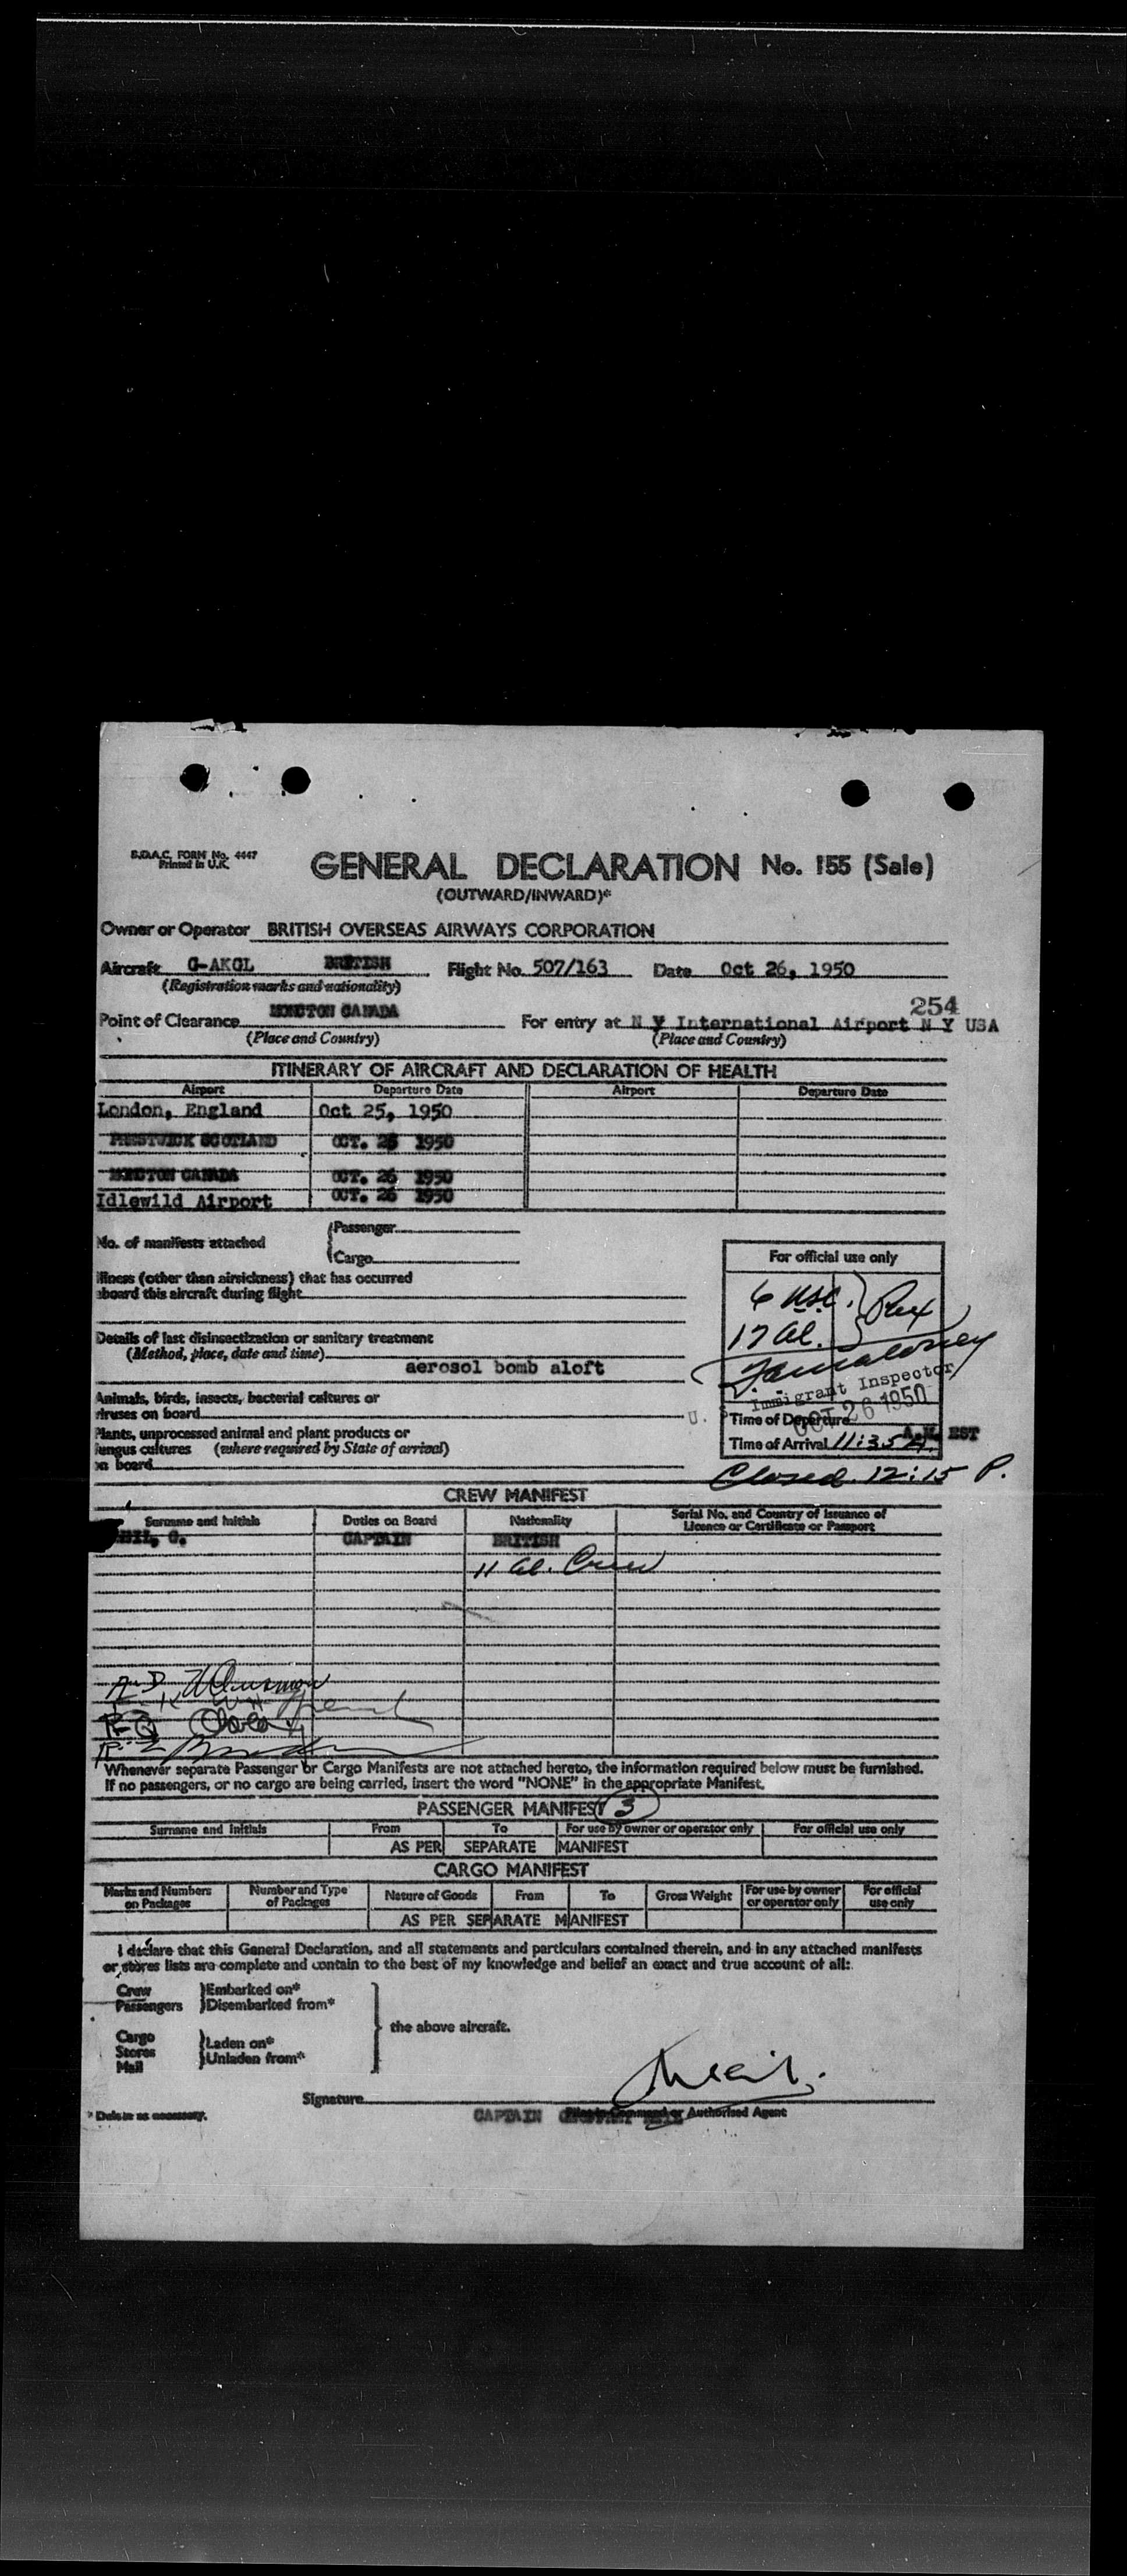 B.O.A.C. FORM No. 4447
Printed in U.K.
GENERAL DECLARATION No. 155 (Sale)
(OUTWARD/INWARD)*
Owner or Operator BRITISH OVERSEAS AIRWAYS CORPORATION
Aircraft G-AKGL BRITISH Flight No. 507/163 Date Oct 26, 1950
(Registration marks and nationality)
254
Point of Clearance MONCTON CANADA For entry at N Y International Airport N Y USA
(Place and Country) (Place and Country)
ITINERARY OF AIRCRAFT AND DECLARATION OF HEALTH
Airport Departure Date Airport Departure Date
London, England Oct 25, 1950
PRESTWICK SCOTLAND OCT. 26 1950
MONCTON CANADA OCT. 26 1950
Idlewild Airport OCT. 26 1950
No. of manifests attached
Passenger
Cargo
Illness (other than airsickness) that has occurred
aboard this aircraft during flight
Details of last disinsectization or sanitary treatment
(Method, place, date and time)
aerosol bomb aloft
Animals, birds, insects, bacterial cultures or
viruses on board
Plants, unprocessed animal and plant products or
fungus cultures (where required by State of arrival)
on board
For official use only
6 USC.
17 Al.
Immigrant Inspector
U. S.
OCT 26 1950
Time of Departure
Time of Arrival 11:35 A. A.M. EST
Closed 12:15 P.
CREW MANIFEST
Surname and Initials Duties on Board Nationality Serial No. and Country of Issuance of
Licence or Certificate or Passport
G. CAPTAIN BRITISH
11 Al. Crew
Whenever separate Passenger or Cargo Manifests are not attached hereto, the information required below must be furnished.
If no passengers, or no cargo are being carried, insert the word "NONE" in the appropriate Manifest.
PASSENGER MANIFEST 3
Surname and Initials From To For use by owner or operator only For official use only
AS PER SEPARATE MANIFEST
CARGO MANIFEST
Marks and Numbers on Packages Number and Type of Packages Nature of Goods From To Gross Weight For use by owner or operator only For official use only
AS PER SEPARATE MANIFEST
I declare that this General Declaration, and all statements and particulars contained therein, and in any attached manifests
or stores lists are complete and contain to the best of my knowledge and belief an exact and true account of all:
Crew Embarked on*
Passengers Disembarked from*
the above aircraft.
Cargo
Stores Laden on*
Mail Unladen from*
Signature
* Delete as necessary.
CAPTAIN
Pilot in Command or Authorised Agent